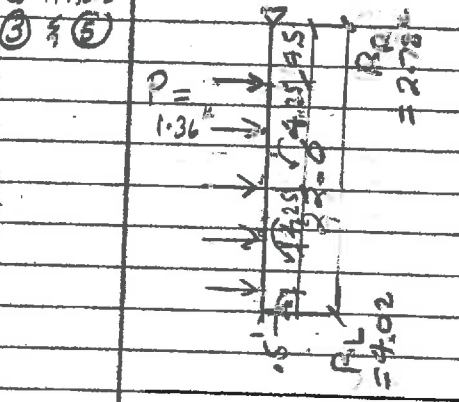 ③ & ⑤
P =
1.36ᵏ
4.5
4.25
22.0
4.25
.5'
R_R
= 2.78ᵏ
R_L
= 4.02